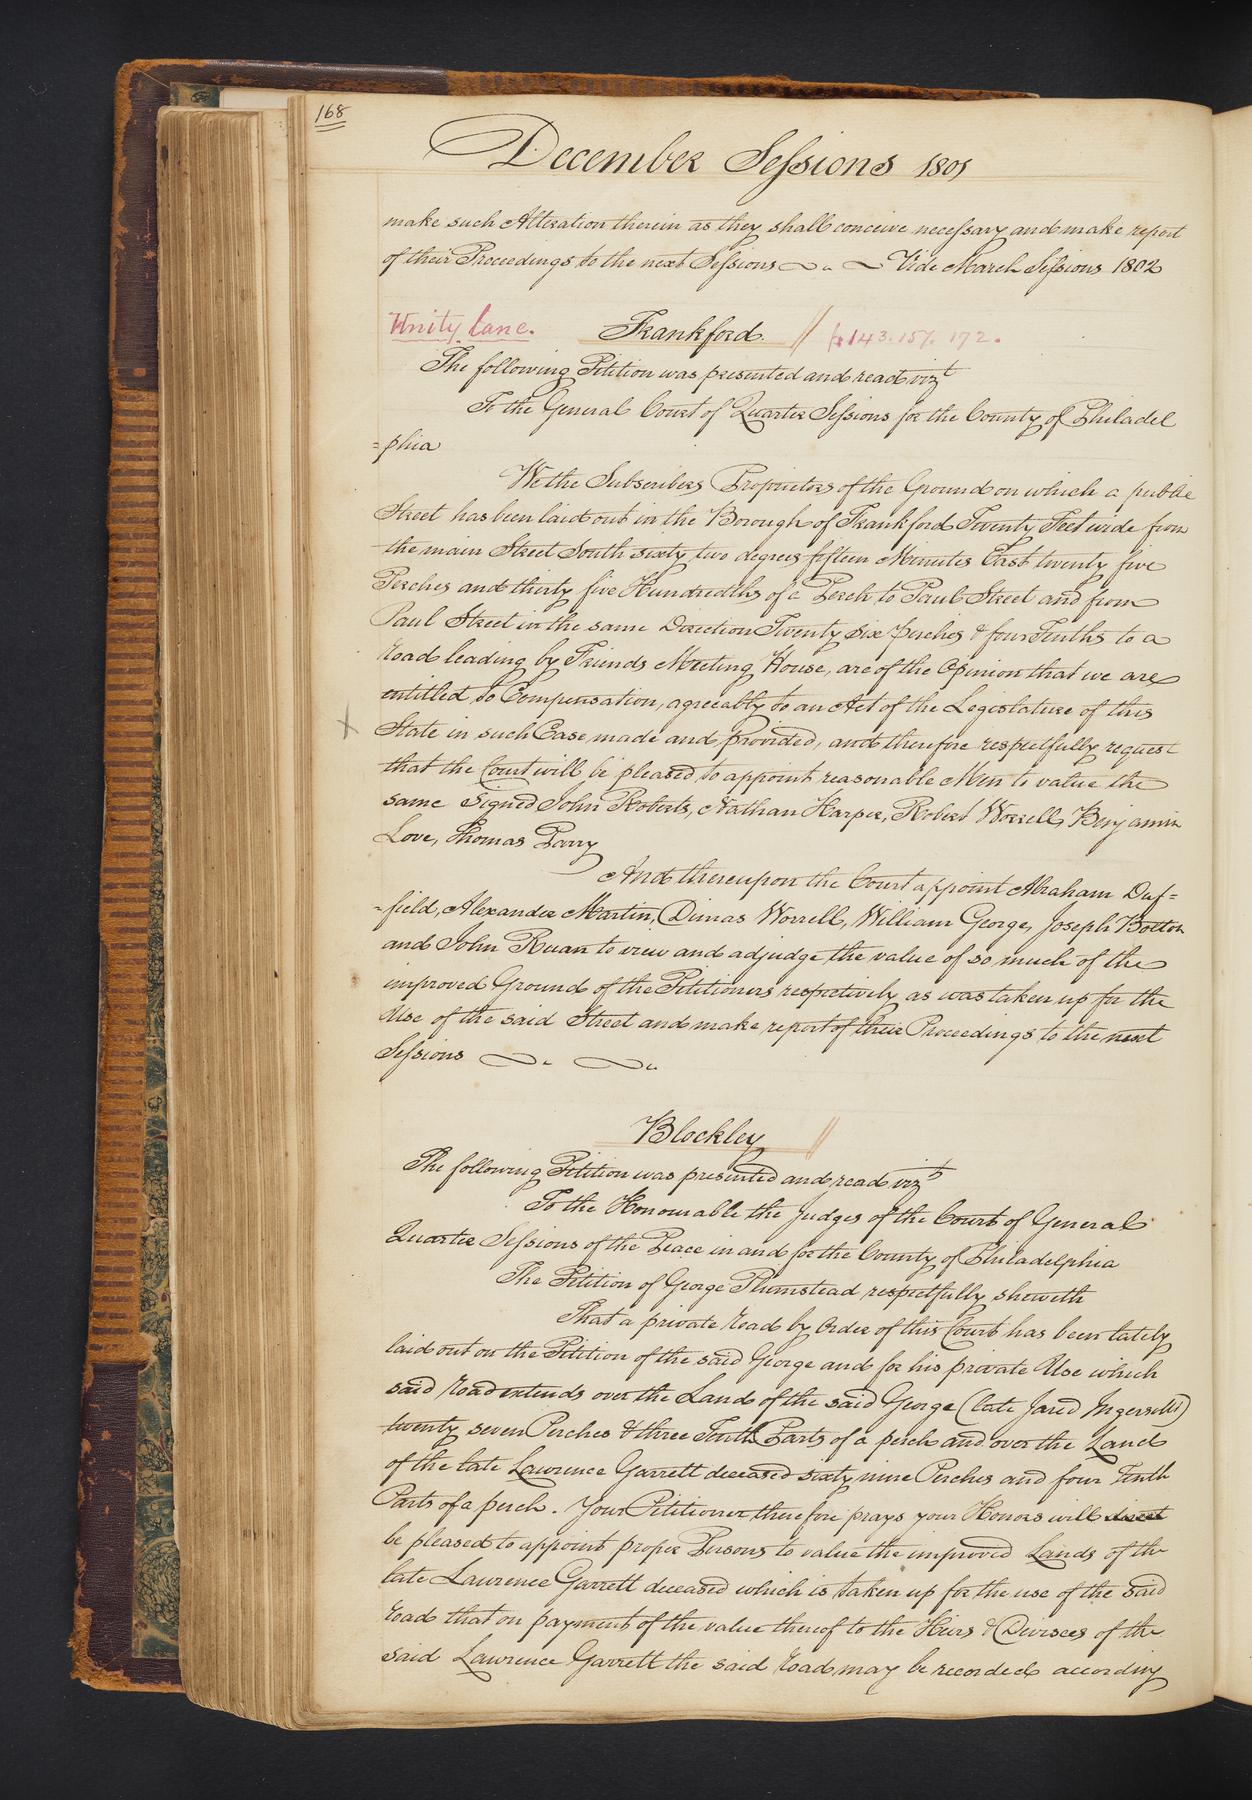 168
December Sessions 1801
make such Alteration therein as they shall conceive necessary and make report
of their Proceedings to the next Sessions Vide March Sessions 1802
Unity Lane. Frankford. // p 143. 157. 172.
The following Petition was presented and read vizt
To the General Court of Quarter Sessions for the County of Philadel
=phia
We the Subscribers Proprietors of the Ground on which a public
Street has been laid out in the Borough of Frankford Twenty Feet wide from
the main Street South sixty two degrees fifteen Minutes East twenty five
Perches and thirty five Hundredths of a Perch to Paul Street and from
Paul Street in the same Direction Twenty Six perches & four Tenths to a
road leading by Friends Meeting House, are of the Opinion that we are
entitled to Compensation, agreeably to an Act of the Legislature of this
State in such Case made and provided, and therefore respectfully request
that the Court will be pleased to appoint reasonable Men to value the
same Signed John Roberts, Nathan Harper, Robert Worrell, Benjamin
Love, Thomas Parry
And thereupon the Court appoint Abraham Duf=
=field, Alexander Martin, Dimas Worrell, William George, Joseph Bolton
and John Ruan to view and adjudge the value of so much of the
improved Ground of the Petitioners respectively as was taken up for the
Use of the said Street and make report of their Proceedings to the next
Sessions
Blockley //
The following Petition was presented and read vizt
To the Honourable the Judges of the Court of General
Quarter Sessions of the Peace in and for the County of Philadelphia
The Petition of George Plumstead respectfully sheweth
That a private road by Order of this Court has been lately
laid out on the Petition of the said George and for his private Use which
said road extends over the Land of the said George (late Jared Ingersolls)
twenty seven Perches & three Tenth Parts of a perch and over the Land
of the late Lawrence Garrett deceased sixty nine Perches and four Tenth
Parts of a perch. Your Petitioner therefore prays your Honors will
be pleased to appoint proper Persons to value the improved Lands of the
late Lawrence Garrett deceased which is taken up for the use of the said
road that on payment of the value thereof to the Heirs & Devisees of the
said Lawrence Garrett the said road may be recorded according